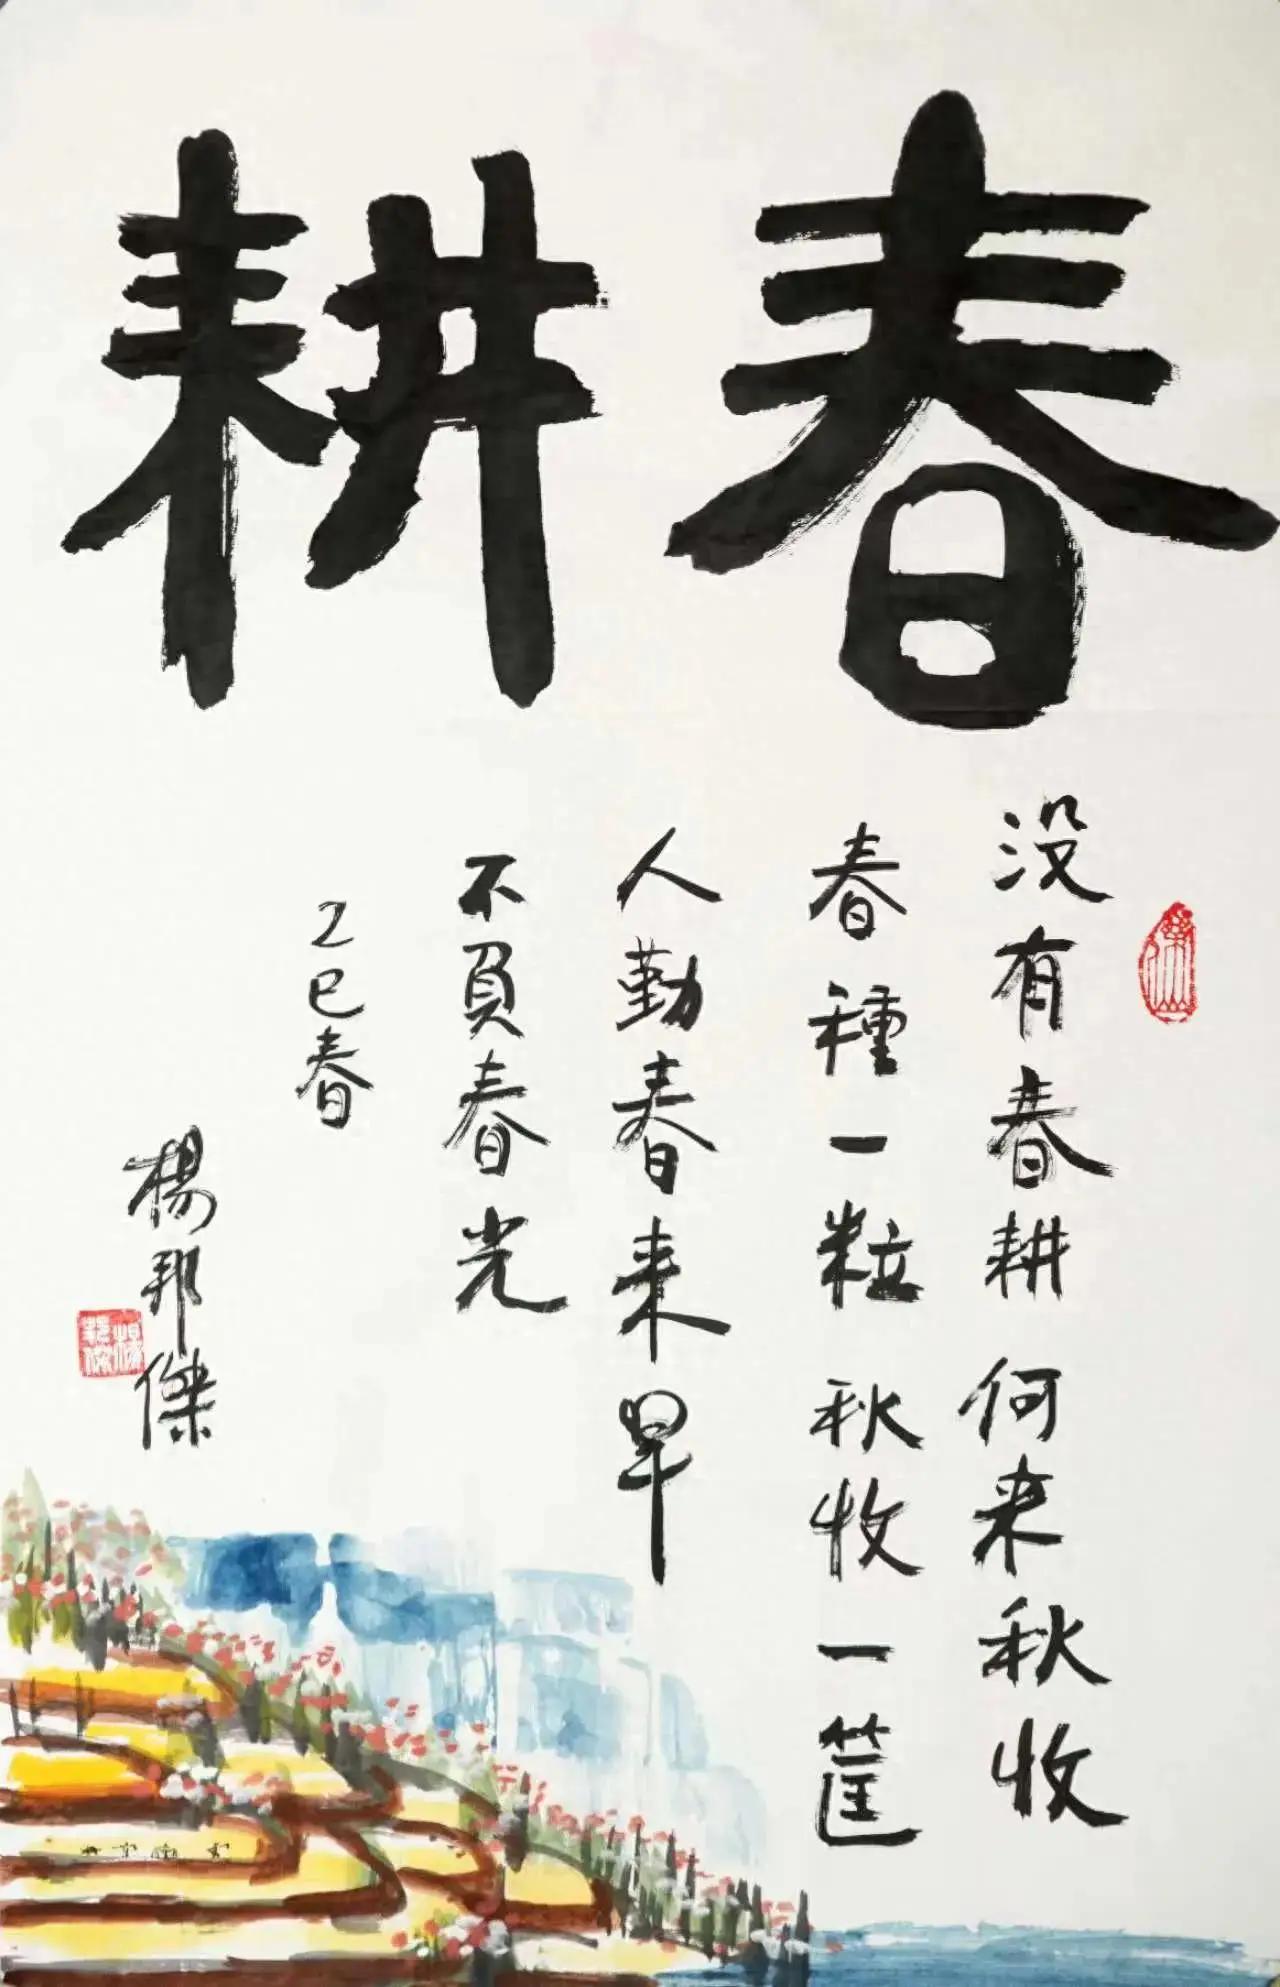 春耕
没有春耕何来秋收
春種一粒秋收一筐
人勤春来早
不負春光
乙巳春
楊邦傑